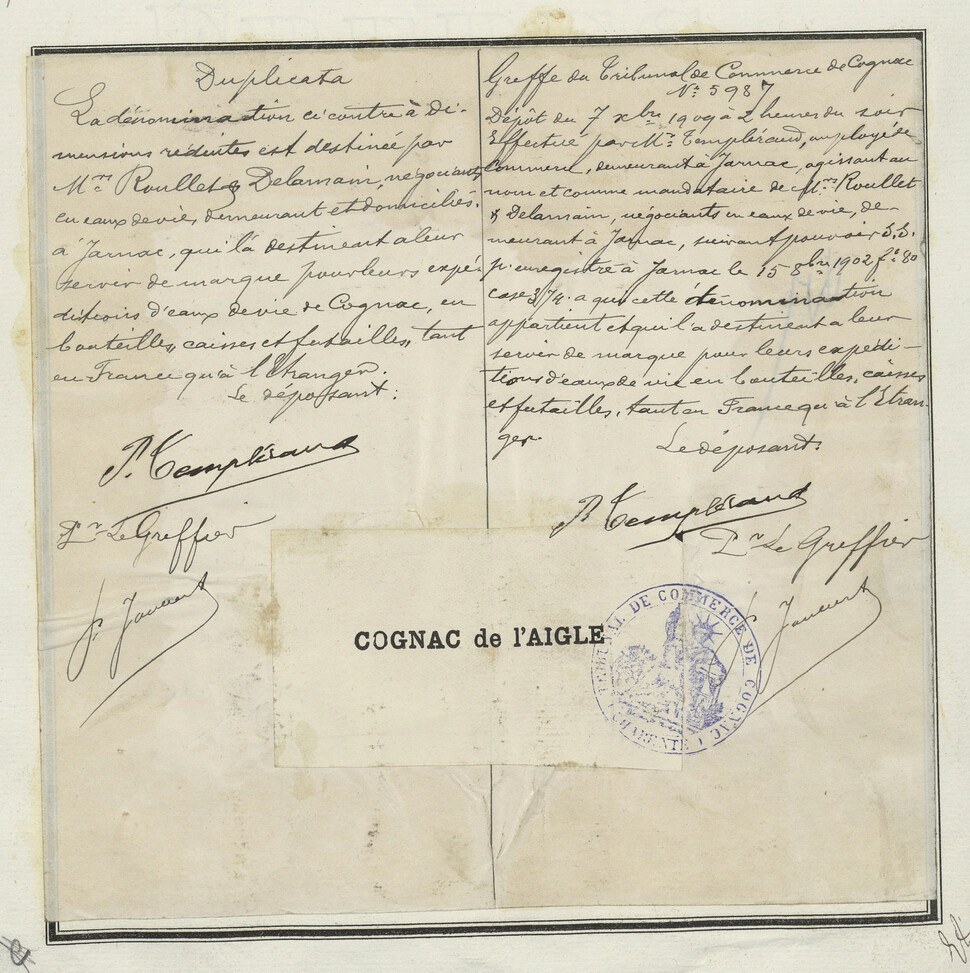 Duplicata
La dénomination ci contre à di-
mensions réduites est destinée par
Mrs Roullet & Delamain, négociants
en eaux de vie, demeurant et domiciliés
à Jarnac, qui la destinent a leur
servir de marque pour leurs expé-
ditions d'eaux de vie de Cognac, en
bouteilles, caisses et futailles, tant
en France qu'à l'Etranger.
Le déposant:
P. Templéraud
Pr Le Greffier
Greffe du Tribunal de Commerce de Cognac
No 5987
Dépôt du 7 xbre 1909 à 2 heures du soir
Effectué par Mr Templéraud, employé de
Commerce, demeurant à Jarnac, agissant au
nom et comme mandataire de Mrs Roullet
& Delamain, négociants en eaux de vie, de-
meurant à Jarnac, suivant pouvoir S.S.
p. enregistré à Jarnac le 15 8bre 1902 fo 80
case 374. a que cette dénomination
appartient et qu'il a destinent a leur
servir de marque pour leurs expédi-
tions d'eaux de vie en bouteilles, caisses
et futailles, tant en France qu'à l'Etran-
ger.
Le déposant:
P. Templéraud
Pr Le Greffier
COGNAC de l'AIGLE
TRIBUNAL DE COMMERCE DE COGNAC
CHARENTE